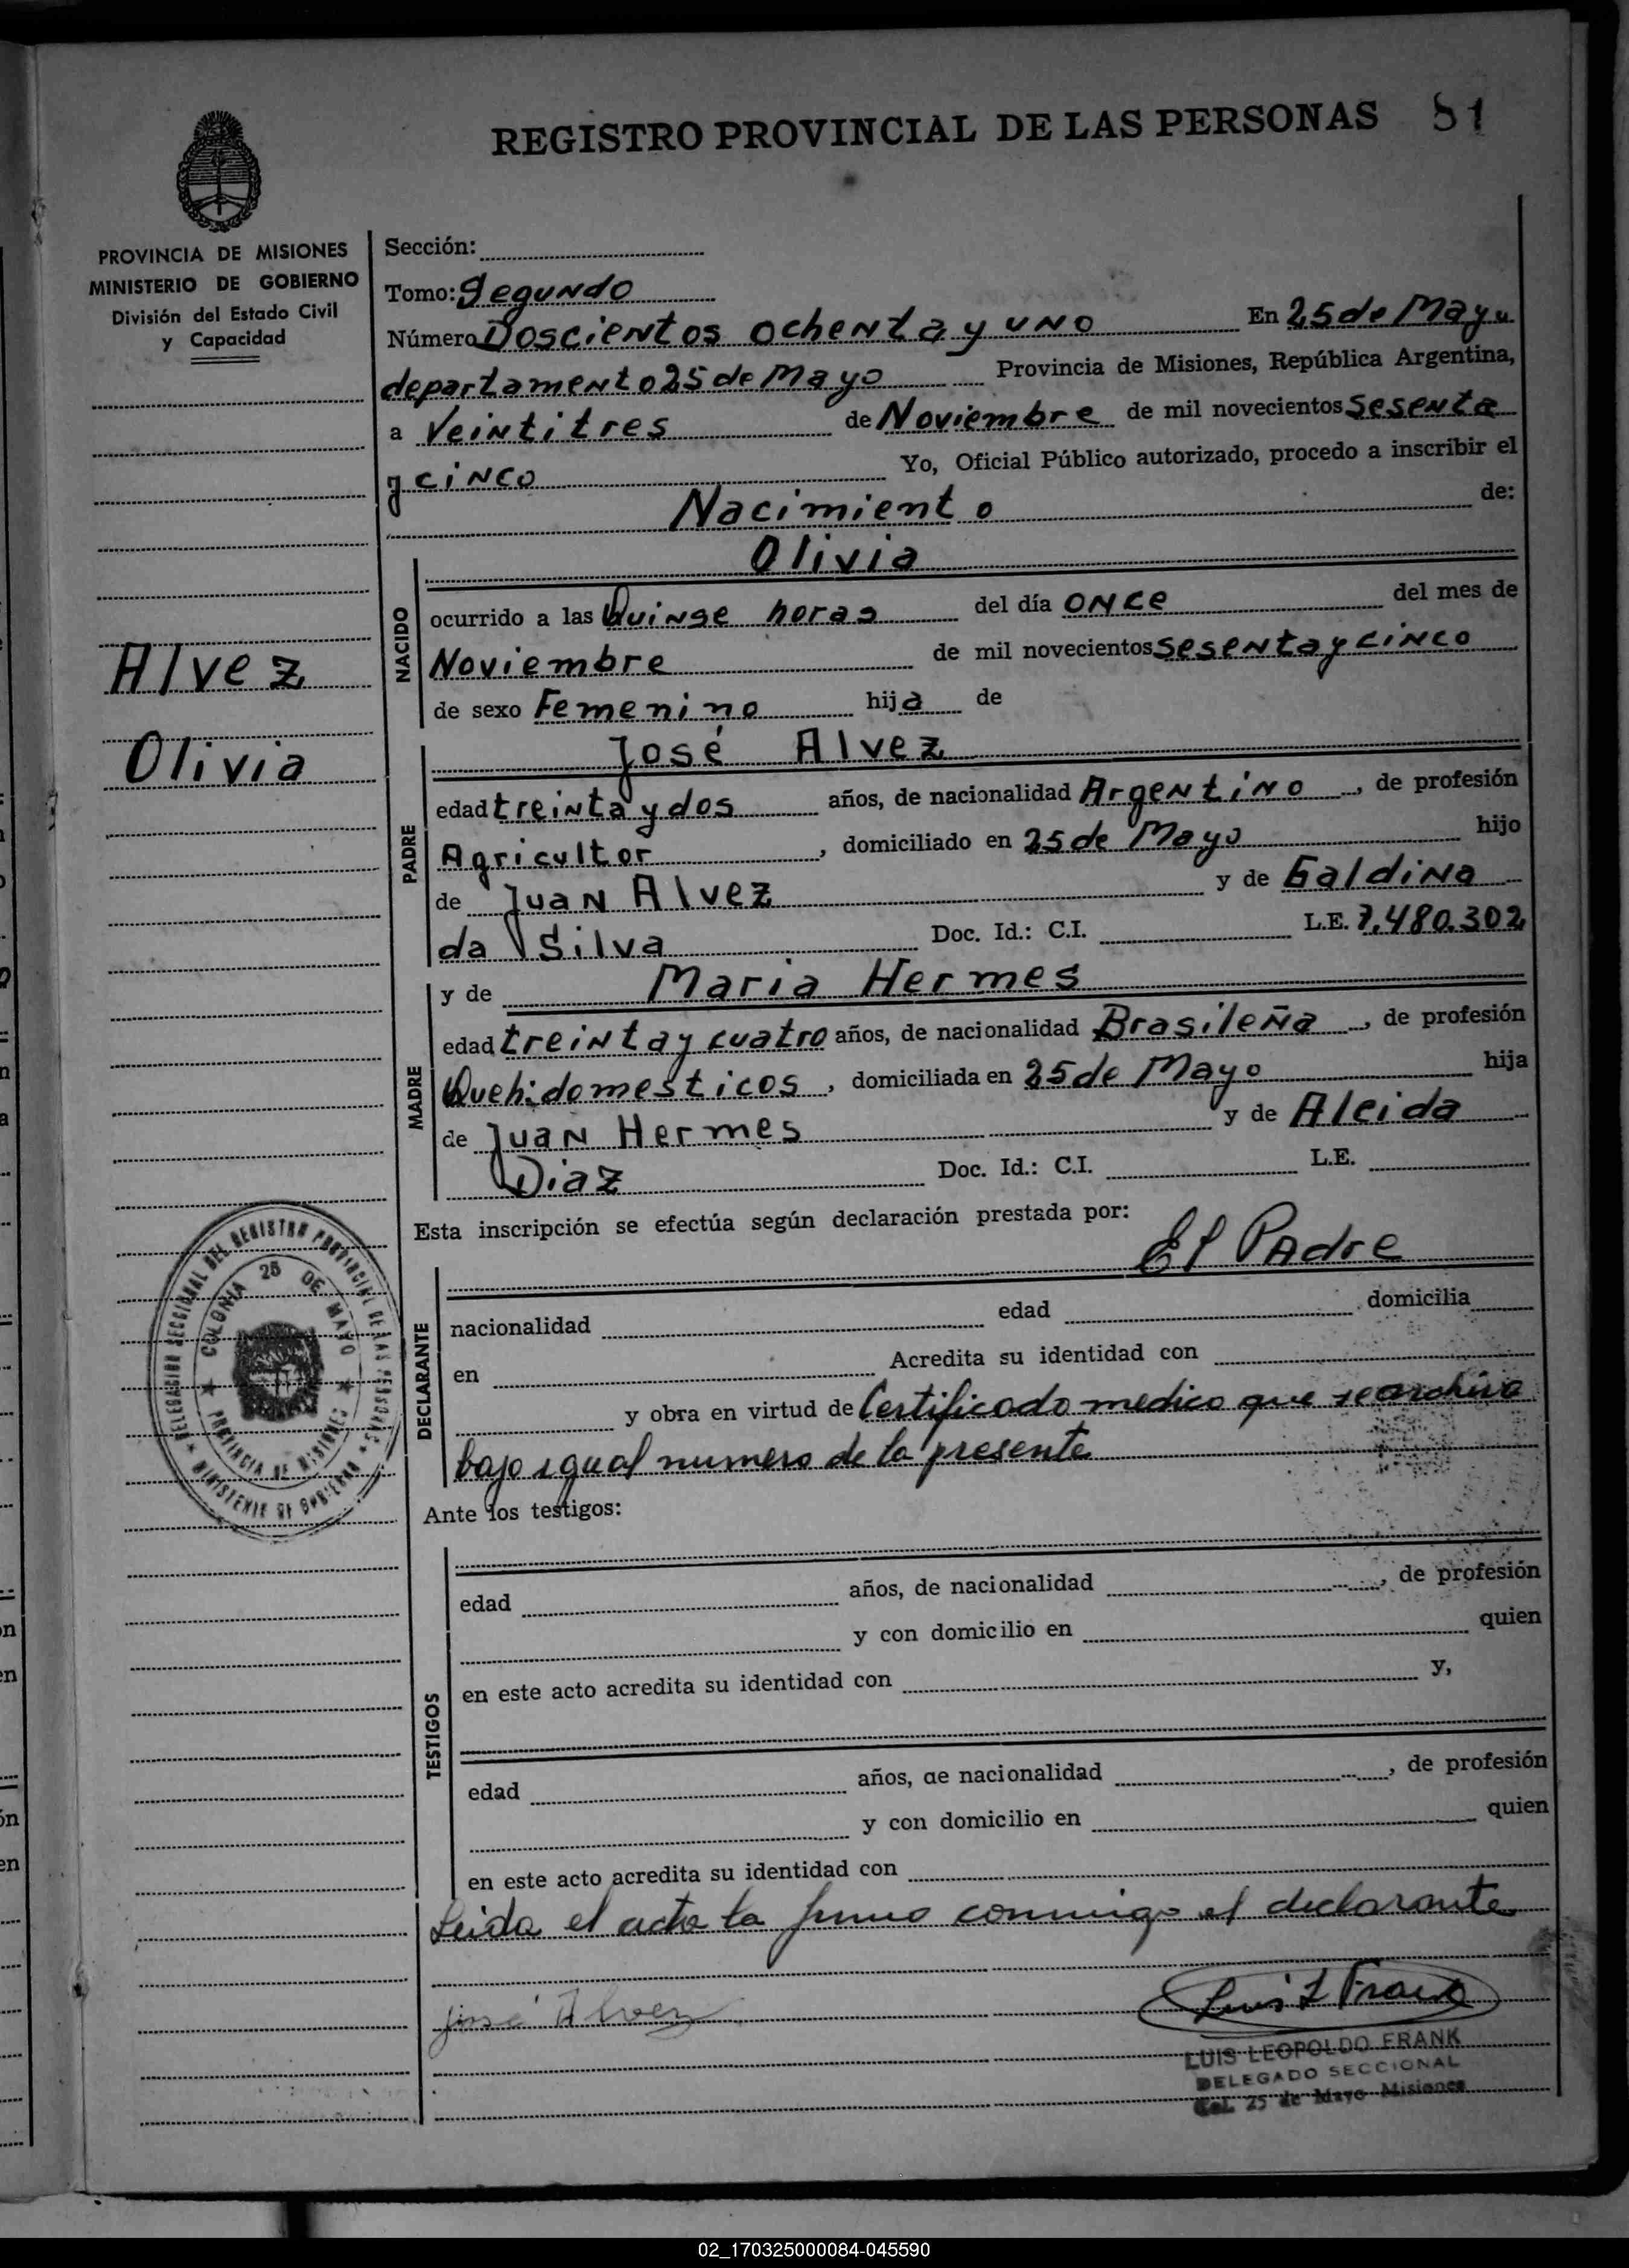 REGISTRO PROVINCIAL DE LAS PERSONAS 81
PROVINCIA DE MISIONES
MINISTERIO DE GOBIERNO
División del Estado Civil
y Capacidad
Alvez
Olivia
Sección:
Tomo: Segundo
Número Doscientos ochenta y uno En 25 de Mayo
departamento 25 de Mayo Provincia de Misiones, República Argentina,
a Veintitres de Noviembre de mil novecientos Sesenta
y cinco Yo, Oficial Público autorizado, procedo a inscribir el
Nacimiento de:
NACIDO
Olivia
ocurrido a las Quinse horas del día once del mes de
Noviembre de mil novecientos Sesenta y cinco
de sexo Femenino hija de
PADRE
José Alvez
edad treinta y dos años, de nacionalidad Argentino, de profesión
Agricultor, domiciliado en 25 de Mayo hijo
de Juan Alvez y de Galdina
da Silva Doc. Id.: C.I. L.E. 7.480.302
MADRE
y de Maria Hermes
edad treinta y cuatro años, de nacionalidad Brasileña, de profesión
Quehidomesticos, domiciliada en 25 de Mayo hija
de Juan Hermes y de Aleida
Diaz Doc. Id.: C.I. L.E.
Esta inscripción se efectúa según declaración prestada por:
El Padre
DECLARANTE
nacionalidad edad domicilia
en Acredita su identidad con
y obra en virtud de Certificado medico que se archiva
bajo igual numero de la presente
Ante los testigos:
TESTIGOS
edad años, de nacionalidad , de profesión
y con domicilio en quien
en este acto acredita su identidad con y,
edad años, de nacionalidad , de profesión
y con domicilio en quien
en este acto acredita su identidad con
Leida el acta la firmo conmigo el declarante
José Alvez
Luis L Frank
LUIS LEOPOLDO FRANK
DELEGADO SECCIONAL
Col. 25 de Mayo Misiones
DELEGACION SECCIONAL DEL REGISTRO PROVINCIAL DE LAS PERSONAS
MINISTERIO DE GOBIERNO
COLONIA 25 DE MAYO
PROVINCIA DE MISIONES
02_170325000084-045590